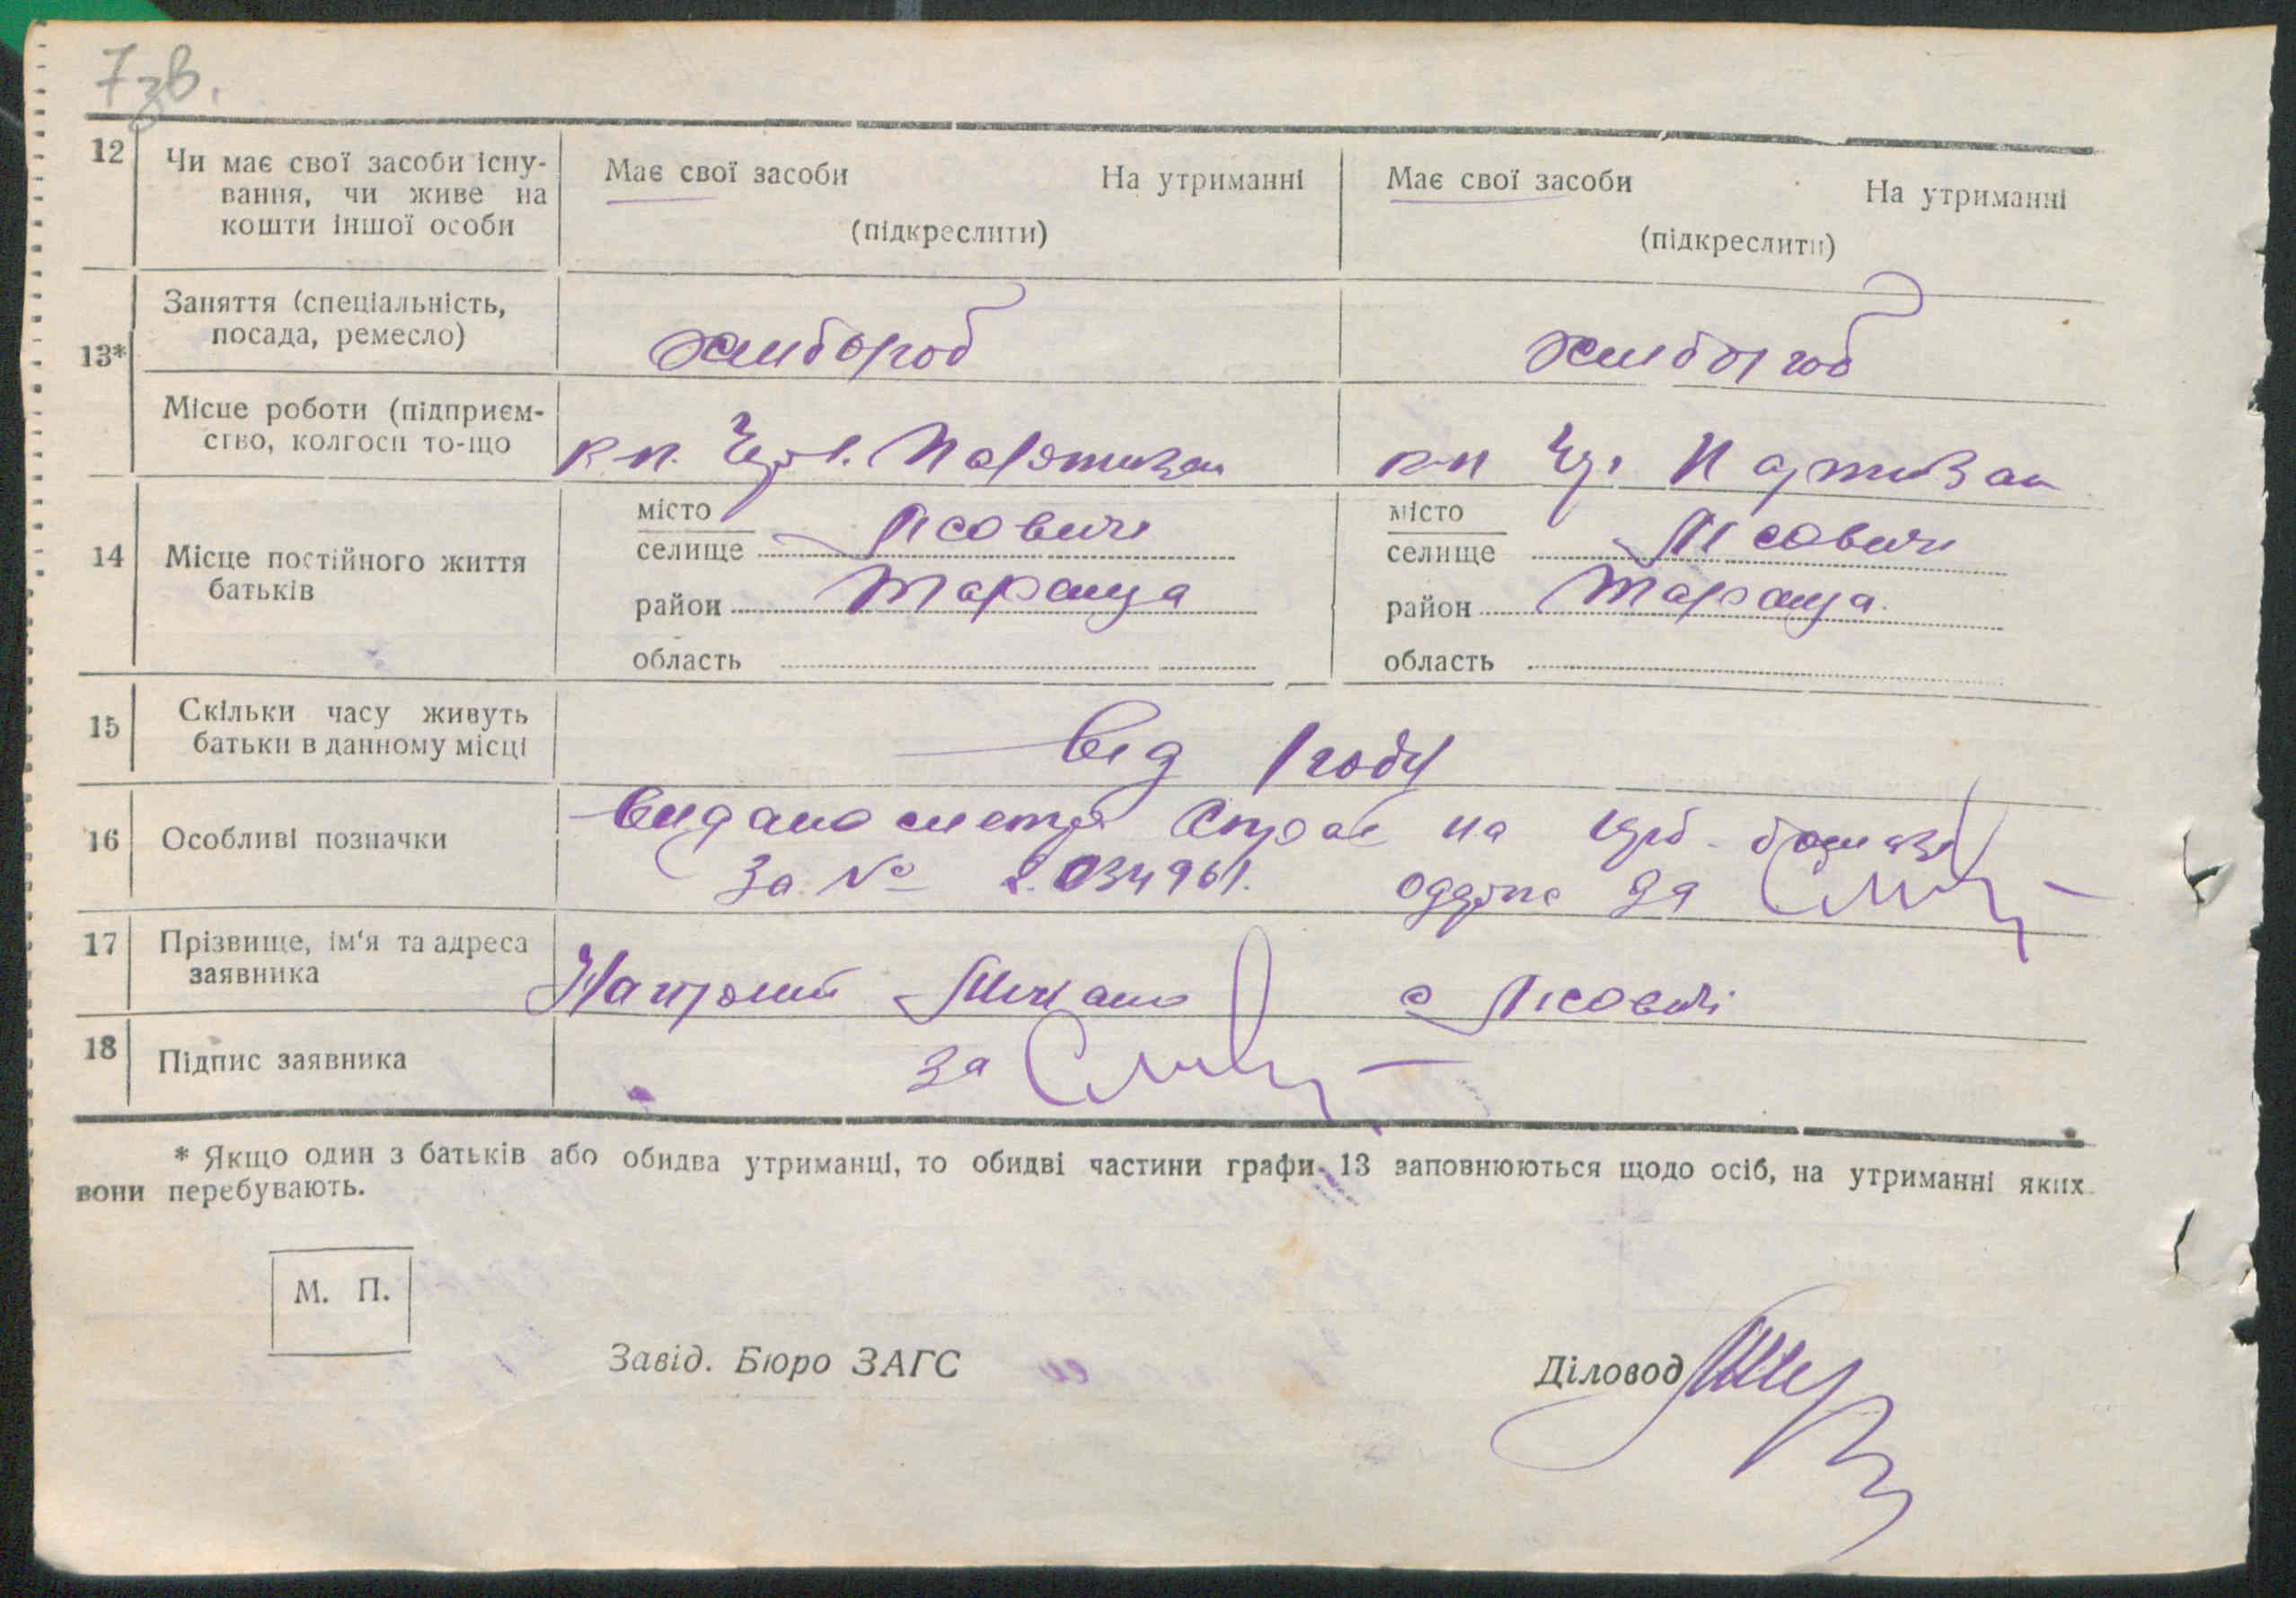 7зв.
12 Чи має свої засоби існу-
вання, чи живе на
кошти іншої особи
Має свої засоби На утриманні
(підкреслити)
Має свої засоби На утриманні
(підкреслити)
13* Заняття (спеціальність,
посада, ремесло)
хлібороб
хлібороб
Місце роботи (підприєм-
ство, колгосп то-що
к.п. Черв. Партизан
к-п Чер Партизан
14 Місце постійного життя
батьків
місто
селище Лісовичі
район Тараща
область
місто
селище Лісовичі
район Тараща.
область
15 Скільки часу живуть
батьки в данному місці
від 1 году
16 Особливі позначки
Видано на
За № 034961. за
17 Прізвище, ім'я та адреса
заявника
с Лісовичі
18 Підпис заявника
за
* Якщо один з батьків або обидва утриманці, то обидві частини графи 13 заповнюються щодо осіб, на утриманні яких
вони перебувають.
М. П.
Завід. Бюро ЗАГС
Діловод